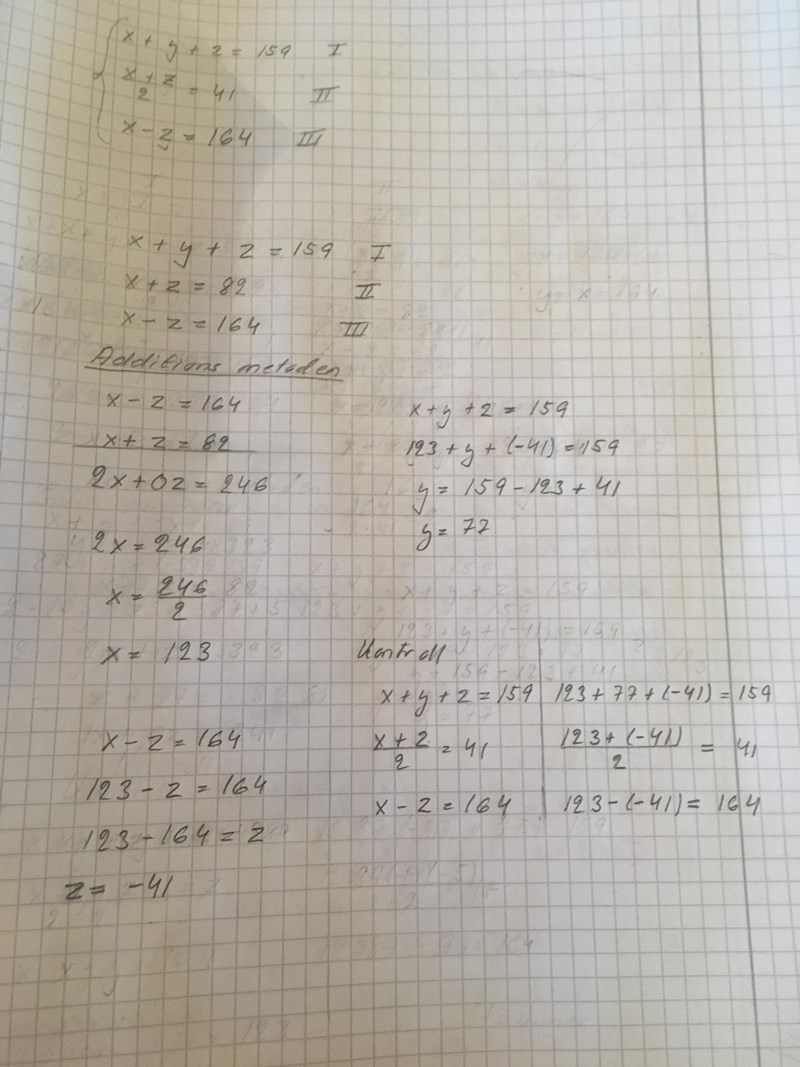 x + y + z = 159 I
x+z/2 = 41 II
x - z = 164 III
x + y + z = 159 I
x + z = 82 II
x - z = 164 III
Additions metoden
x - z = 164
x + z = 82
2x + 0z = 246
2x = 246
x = 246/2
x = 123
x - z = 164
123 - z = 164
123 - 164 = z
z = -41
x + y + z = 159
123 + y + (-41) = 159
y = 159 - 123 + 41
y = 77
Kontroll
x + y + z = 159 | 123 + 77 + (-41) = 159
x+z/2 = 41 | 123+(-41)/2 = 41
x - z = 164 | 123 - (-41) = 164